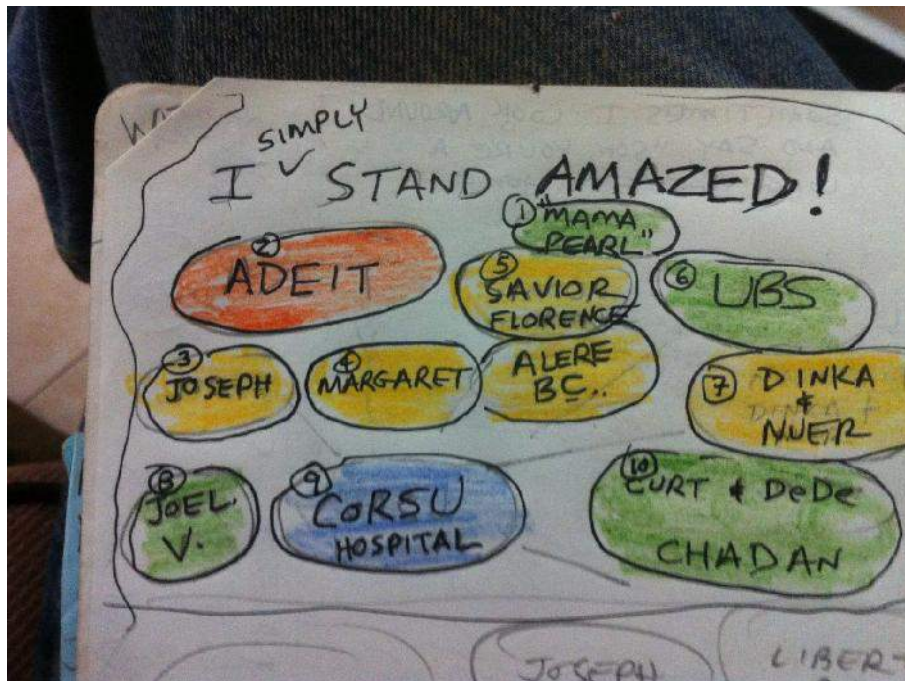 SIMPLY
I STAND AMAZED!
① "MAMA
PEARL"
② ADEIT
⑤ SAVIOR
FLORENCE
⑥ UBS
③ JOSEPH
④ MARGARET
ALERE
BC..
⑦ DINKA
&
NUER
⑧ JOEL.
V.
⑨ CORSU
HOSPITAL
⑩ CURT & DeDe
CHADAN
JOSEPH
LIBER